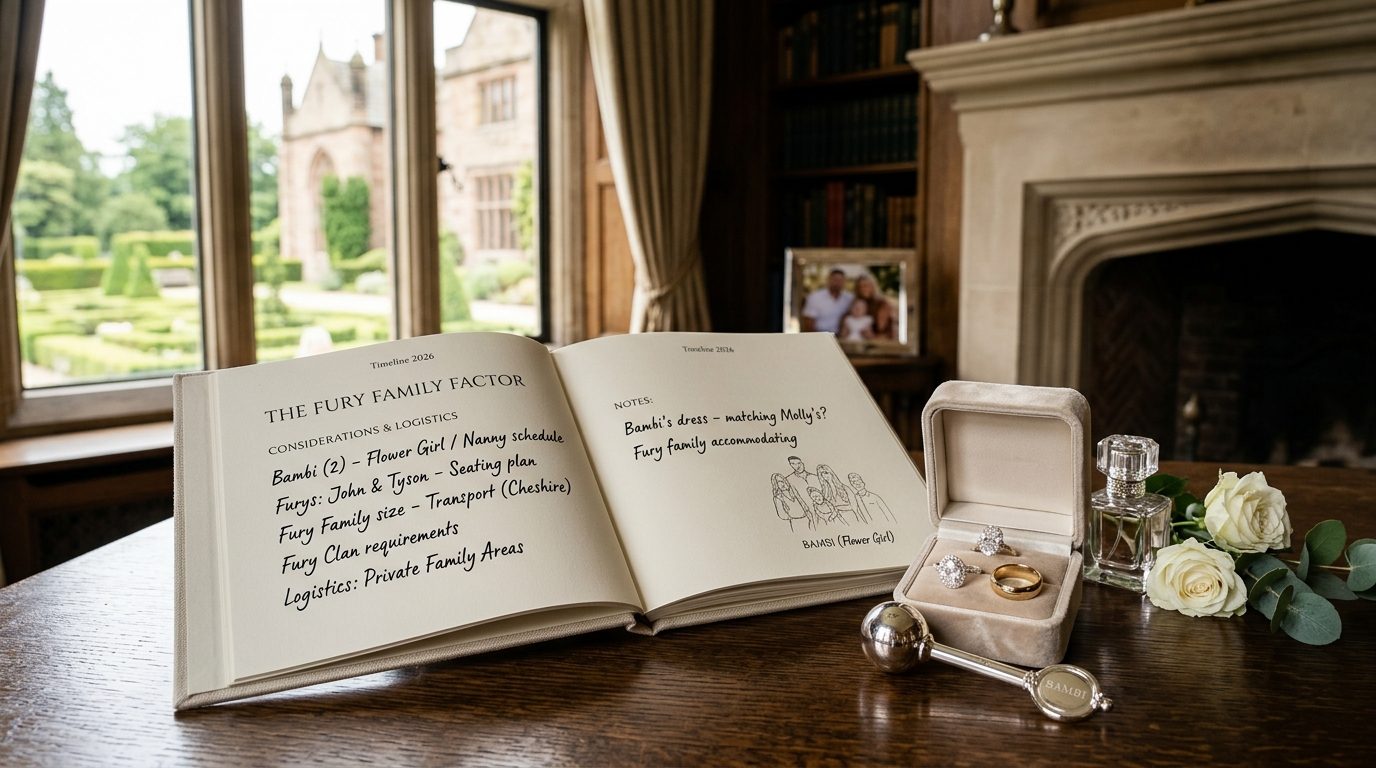 Timeline 2026
THE FURY FAMILY FACTOR
CONSIDERATIONS & LOGISTICS
Bambi (2) – Flower Girl / Nanny schedule
Furys: John & Tyson – Seating plan
Fury Family size – Transport (Cheshire)
Fury Clan requirements
Logistics: Private Family Areas
2026
NOTES:
Bambi's dress – matching Molly's?
Fury family accommodating
BAMSI (Flower Girl)
BAMBI